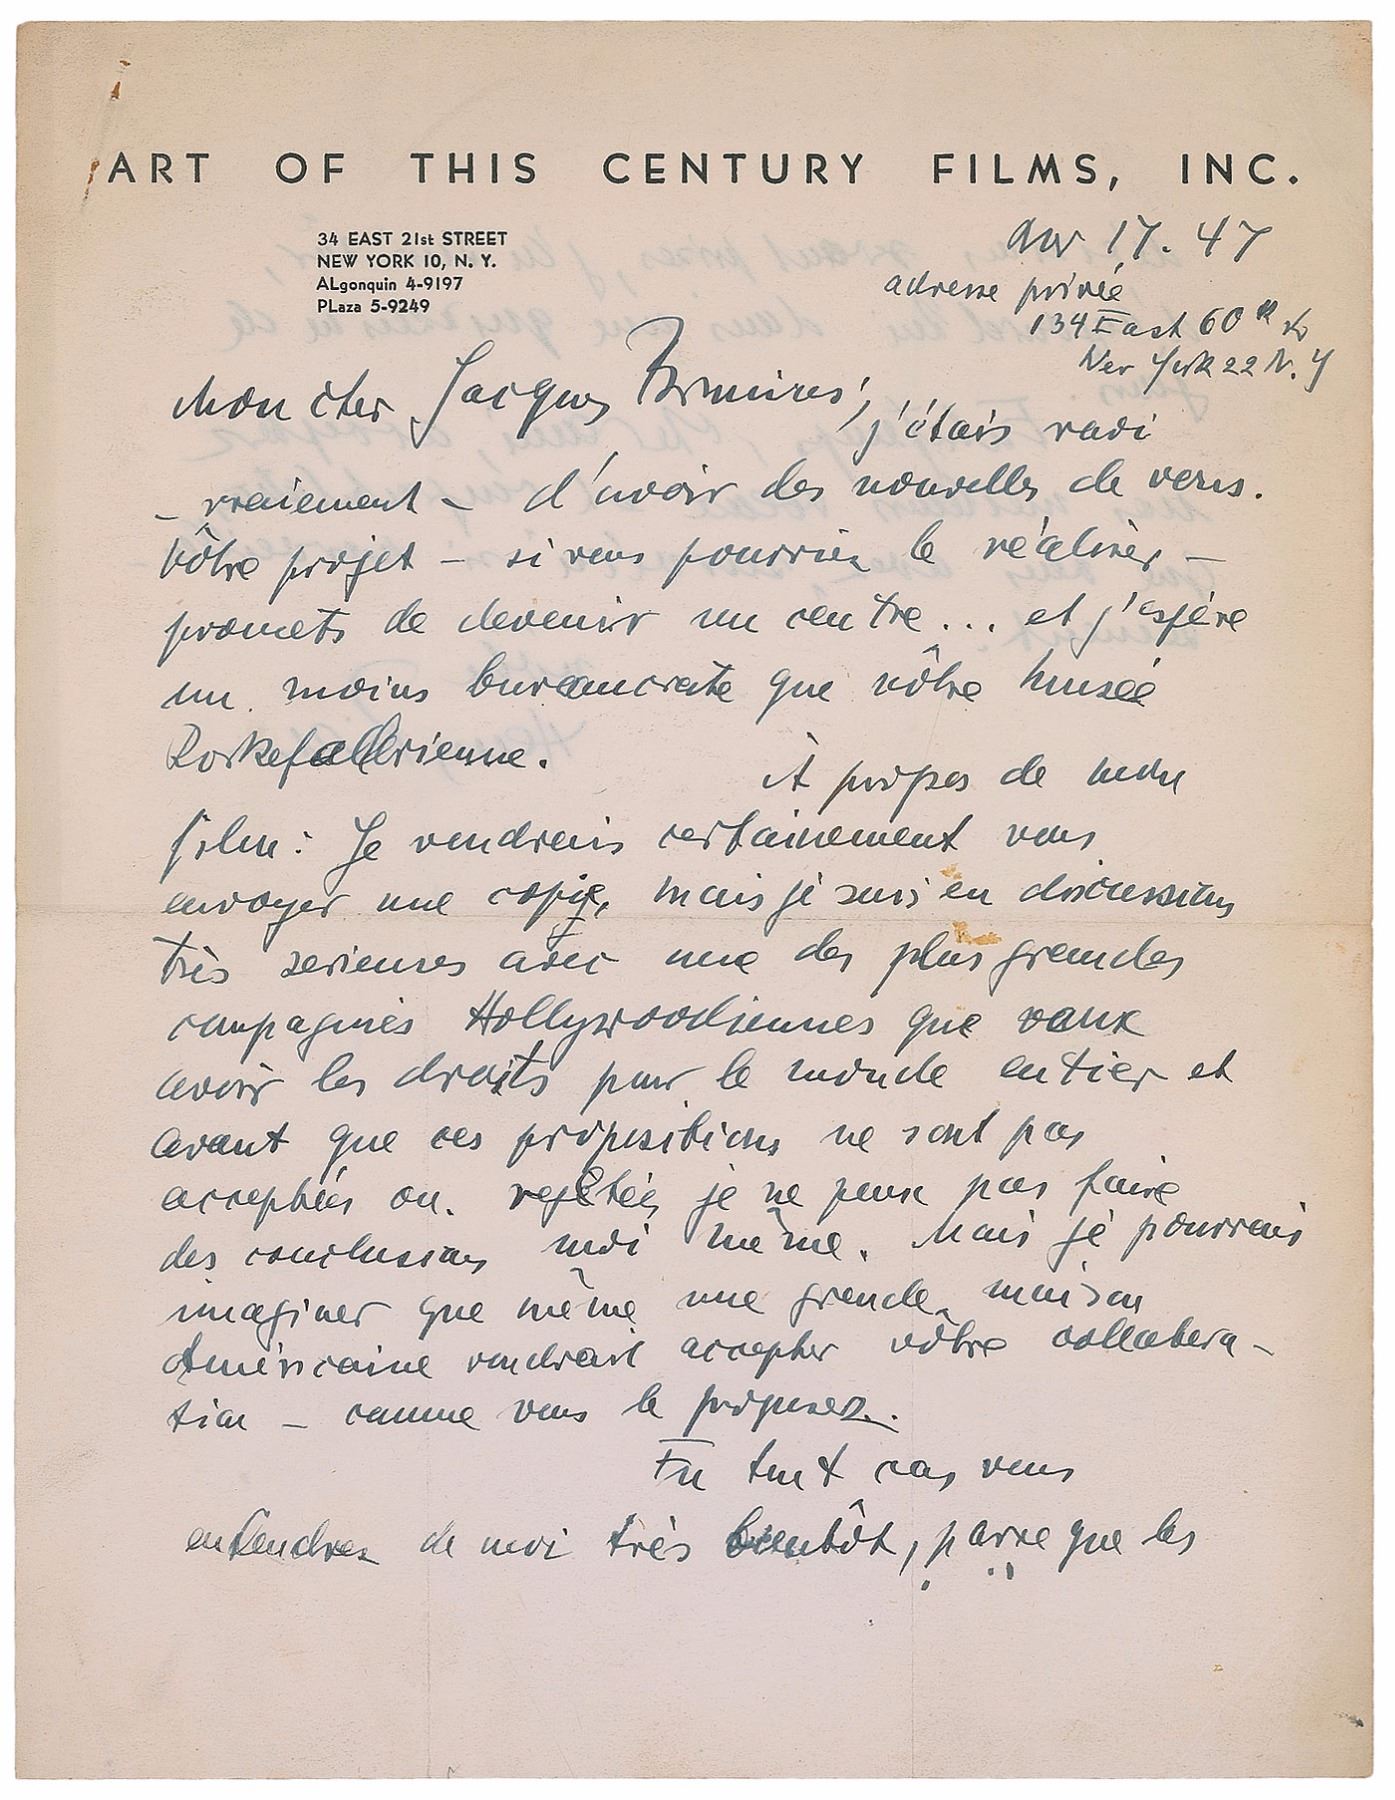 ART OF THIS CENTURY FILMS, INC.
34 EAST 21st STREET
NEW YORK 10, N. Y.
ALgonquin 4-9197
PLaza 5-9249
17. 47
adresse privée
134 East 60th St
New York 22 N. Y
Mon cher Jacques
j'étais ravi
– vraiement – d'avoir des nouvelles de vous.
Vôtre projet – si vous pourriez le réaliser –
promets de devenir un centre... et j'espère
un moins bureaucrate que nôtre Musée
Rockefallerienne.
À propos de mon
film: Je voudrais certainement vous
envoyer une copie, mais je suis en discussions
très serieuses avec une des plus grandes
compagnies Hollywoodiennes que veux
avoir les droits pour le monde entier et
avant que ces propositions ne sont pas
acceptées ou rejetées je ne peux pas faire
des conclusions moi même. Mais je pourrais
imaginer que même une grande maison
Américaine voudrait accepter vôtre collabora-
tion – comme vous le proposez.
En tout cas vous
entendrez de moi très bientôt, parce que les